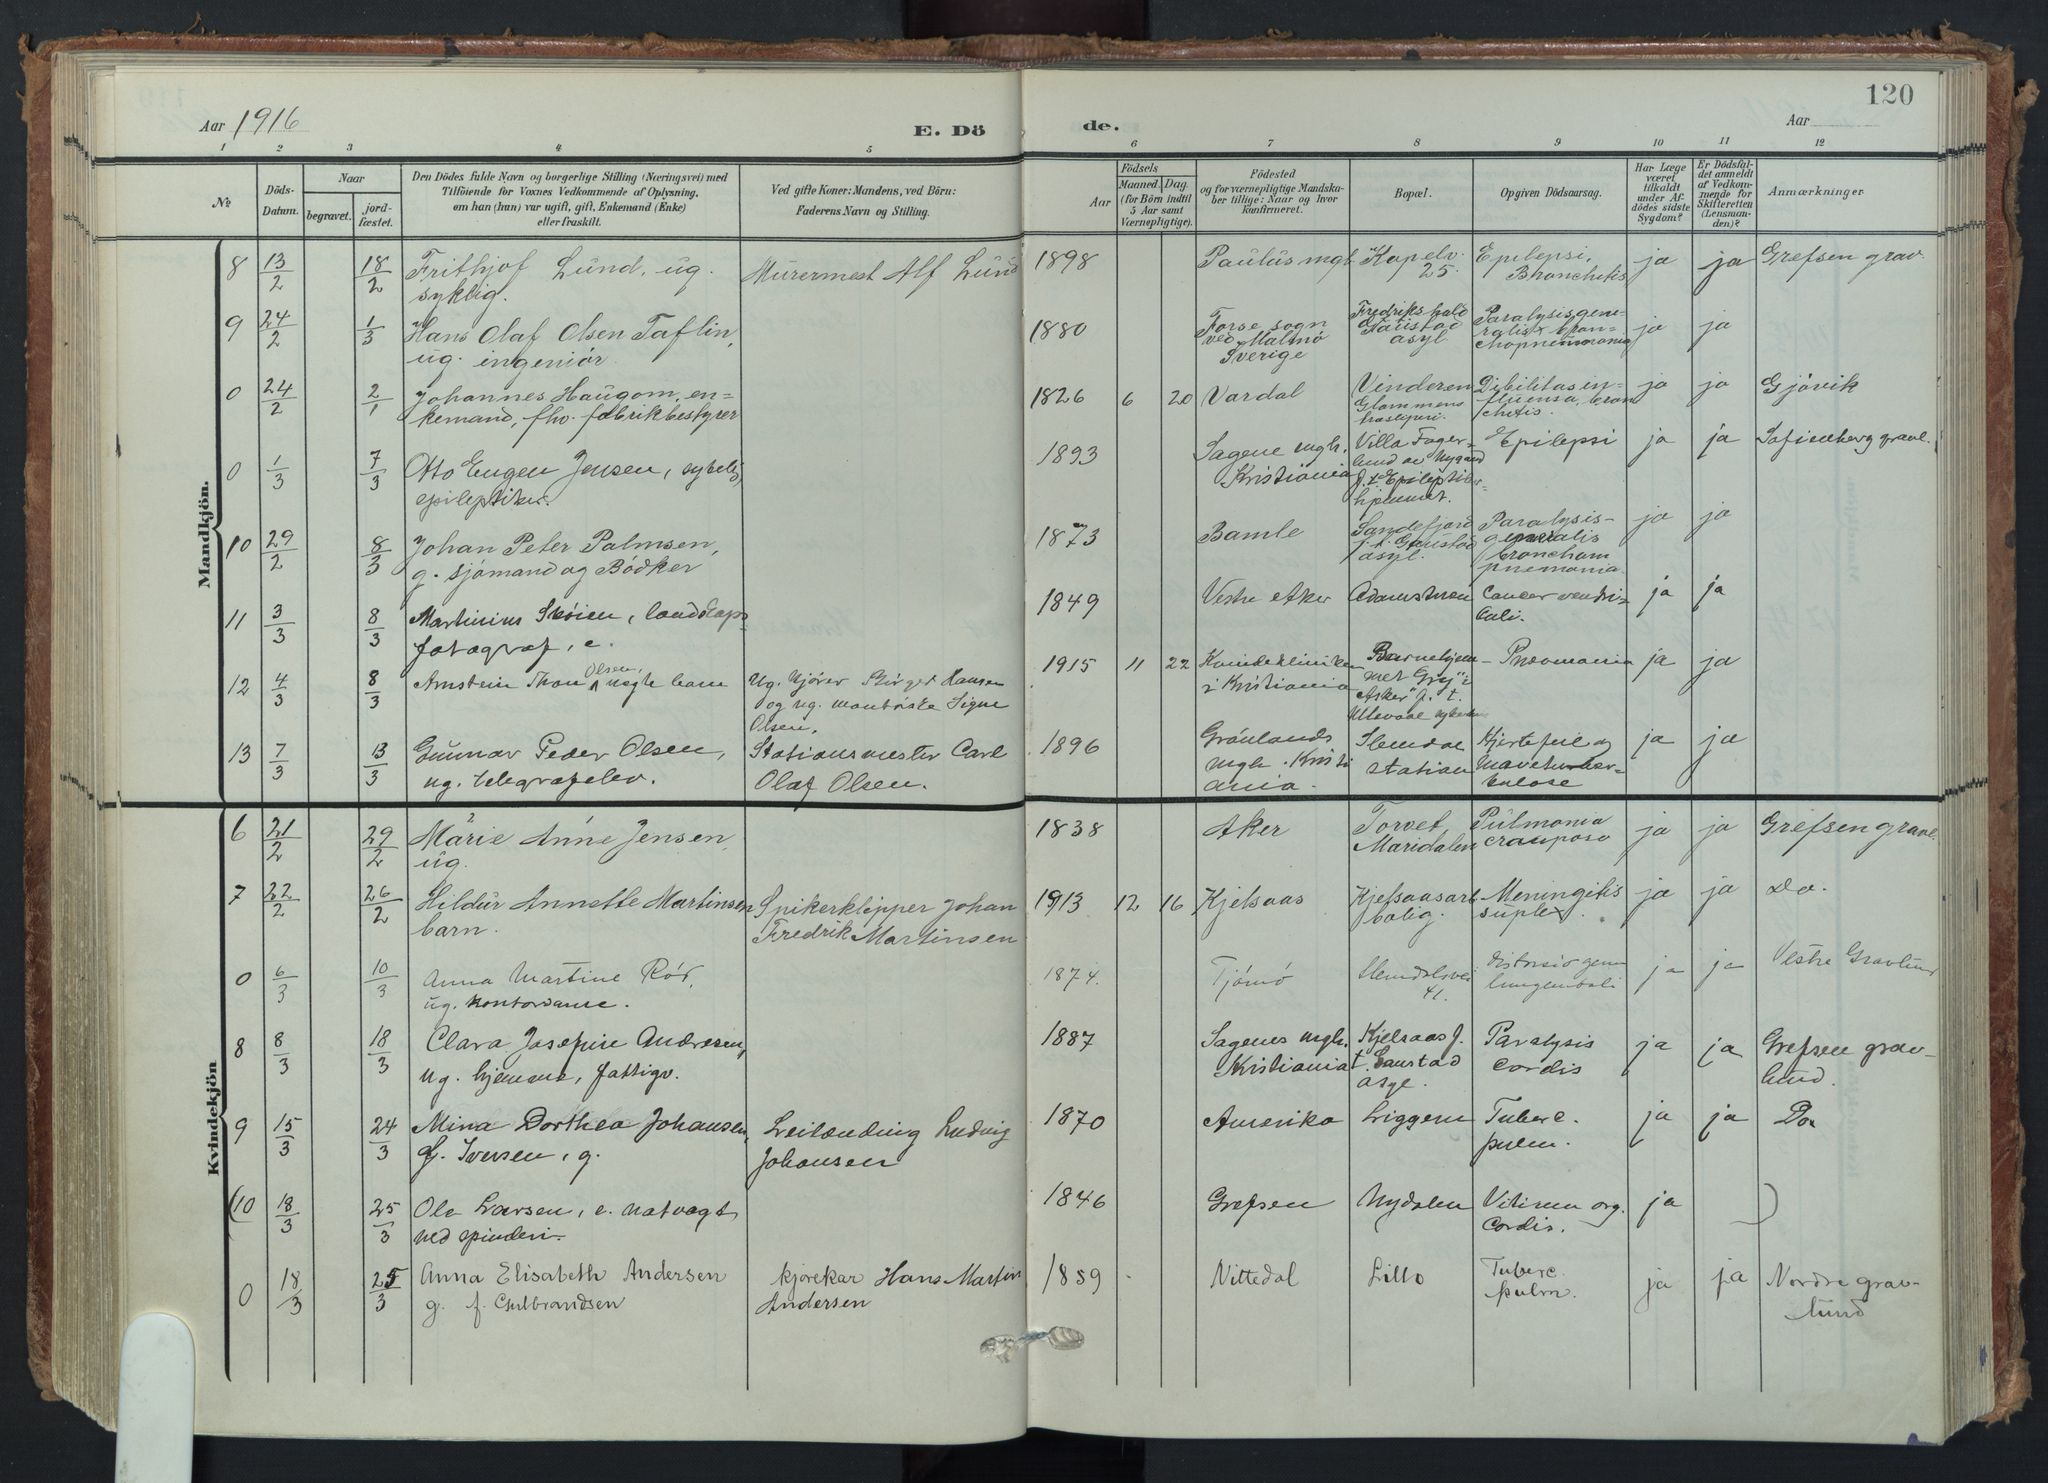 120
Aar 1916
E. Dö de.
Aar
1 2 3 4 5 6 7 8 9 10 11 12
№
Döds-Datum.
Naar
begravet.
jordfæstet.
Den Dödes fulde Navn og borgerlige Stilling (Næringsvei) med
Tilföiende for Voxnes Vedkommende af Oplysning,
om han (hun) var ugift, gift, Enkemand (Enke)
eller fraskilt.
Ved gifte Koner: Mandens, ved Börn:
Faderens Navn og Stilling.
Födsels
Aar
Maaned. Dag.
(for Börn indtil
5 Aar samt
Værnepligtige).
Födested
og for værnepligtige Mandska-
ber tillige: Naar og hvor
konfirmeret.
Bopæl.
Opgiven Dödsaarsag.
Har Læge
været
tilkaldt
under Af-
dödes sidste
Sygdom?
Er Dödsfal-
det anmeldt
af Vedkom-
mende for
Skifteretten
(Lensman-
den)?
Anmærkninger
Mandkjön.
8 13/2 18/2 Frithjof Lund, ug. Murermest Alf Lund 1898 Paulus mgh. Kapelv. Epilepsi, ja ja Grefsen grav.
syklig. 25. Bronchitis
9 24/2 1/3 Hans Olaf Olsen Taflin, 1880 sogn Fredrikshald Paralysis gene- ja ja
ug. ingeniör. ved Malmö Gaustad ralis bron-
Sverige asyl chopneumonia
0 24/2 2/1 Johannes Haugom, en- 1826 6 20 Vardal Vinderen Debilitas in- ja ja Gjövik
kemand, fhv. fabrikbestyrer Glommens fluensa, bron
træsliperi. chitis.
0 1/3 7/3 Otto Eugen Jensen, 1893 Sagene mgh. Villa Fager- Epilepsi ja ja Sofienberg gravl.
epileptiker. Kristiania lund
f. t. Epileptiker-
hjemmet.
10 29/2 8/3 Johan Peter Palmsen, 1873 Bamle Sandefjord Paralysis- ja ja
g. sjömand og Bödker f. t. Gaustad generalis
asyl. bronchom
pnemonia.
11 3/3 8/3 Martinius Sköien, landskaps- 1849 Vestre Aker Cancer ventri- ja ja
fotograf, e. culi.
12 4/3 8/3 Arnstein Thon Olsen, uegte barn Ug. kjörer Birger Hansen 1915 11 22 Kvindekliniken Barnehjem- Pnevmonia ja ja
og ug. Signe i Kristiania met Gry" i
Olsen, Asker" f. t.
Ullevaal
13 7/3 13/3 Gunnar Peder Olsen, Stationsmester Carl 1896 Grönlands Slemdal Hjertefeil og ja ja
ug. telegrafelev. Olaf Olsen. mgh. Kristi station
ania.
Kvindekjön
6 21/2 29/2 Marie Anne Jensen, 1838 Aker Torvet Pulmonia ja ja Grefsen gravl.
ug. Maridalen crouposo
7 22/2 26/2 Hildur Annette Martinsen Spikerklipper Johan 1913 12 16 Kjelsaas Kjelsaasarb Meningitis ja ja Do.
barn. Fredrik Martinsen bolig.
0 6/3 10/3 Anna Martine Rör, 1874. Tjömö Slemdalsvei ja ja Vestre Gravlund
ug. kontordame. 41.
8 8/3 18/3 Clara Josefine Andresen, 1887 Sagenes mgh. Kjelsaas f. Paralysis ja ja Grefsen grav-
ug. hjemme, fattigv. Kristiania t. Gaustad cordis lund.
asyl.
9 15/3 24/3 Mina Dorthea Johansen, Leilænding Ludvig 1870 Amerika Liggern Tuberc. ja ja Do.
f. Iversen, g. Johansen pulm.
(10 18/3 25/3 Ole Larsen, e. natvagt 1846 Grefsen Nydalen Vitium org. ja )
ved spinderi. Cordis.
0 18/3 25/3 Anna Elisabeth Andersen kjörekar Hans Martin 1889 Nittedal Lillo Tuberc. ja ja Nordre grav-
g. f. Gulbrandsen Andersen pulm. lund